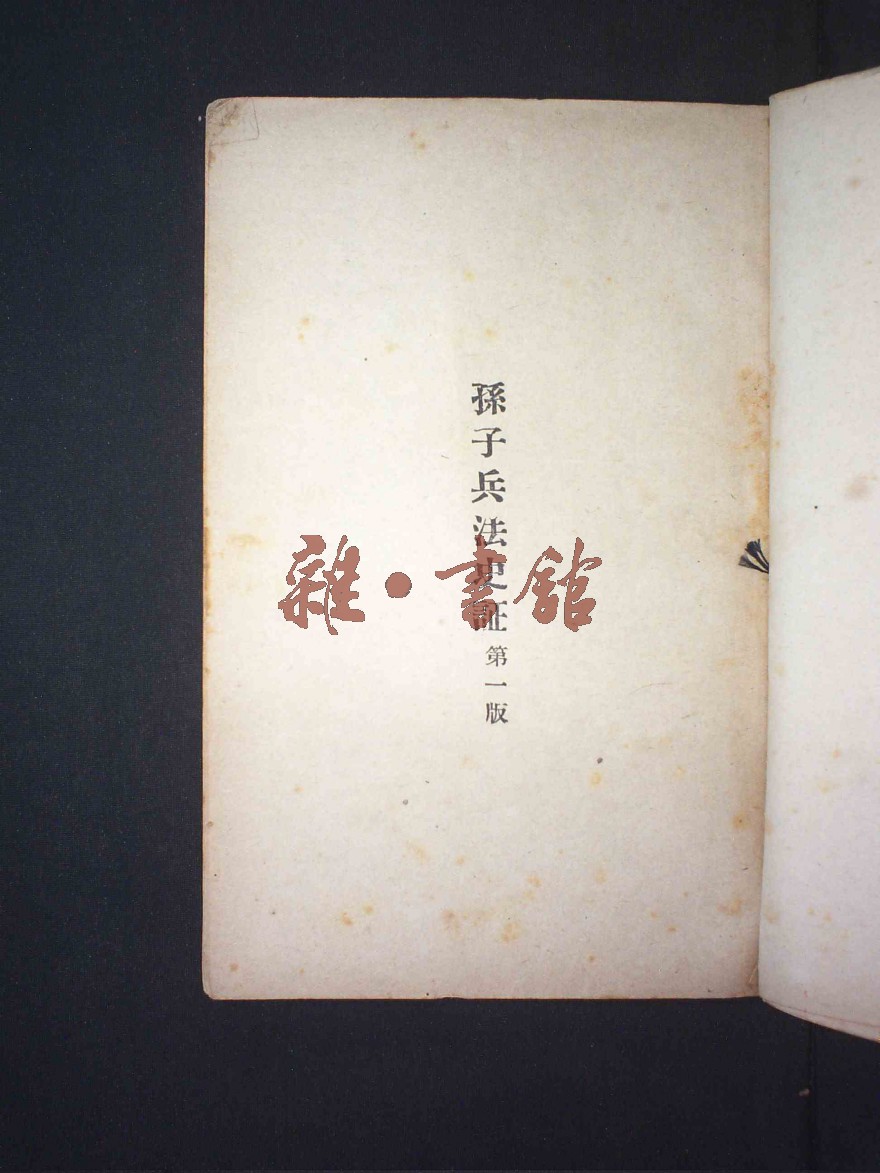 孫子兵法史証
第一版
雜·書館